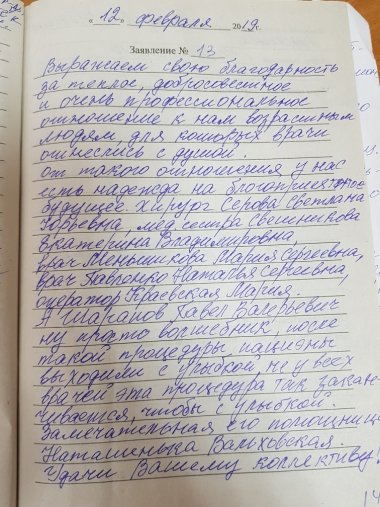 „12" февраля 2019г.
Заявление № 13
Выражаем свою благодарность
за теплое, добросовестное
и очень профессиональное
отношение к нам возрастным
людям, для которых врачи
отнеслись с душой.
от такого отношения у нас
есть надежда на благоприятное
будущее. Хирург Серова Светлана
Юрьевна, мед. сестра Свешникова
Екатерина Владимировна,
врач Меньшикова Мария Сергеевна,
врач Павленко Наталья Сергеевна,
оператор Краевская Мария.
А Шарапов Павел Валерьевич
ну просто волшебник, после
такой процедуры пациэны
выходили с улыбкой, не у всех
врачей эта процедура так закан-
чивается, чтобы с улыбкой.
Замечательная его помощница
Наташенька Вальховская.
Удачи Вашему коллективу!